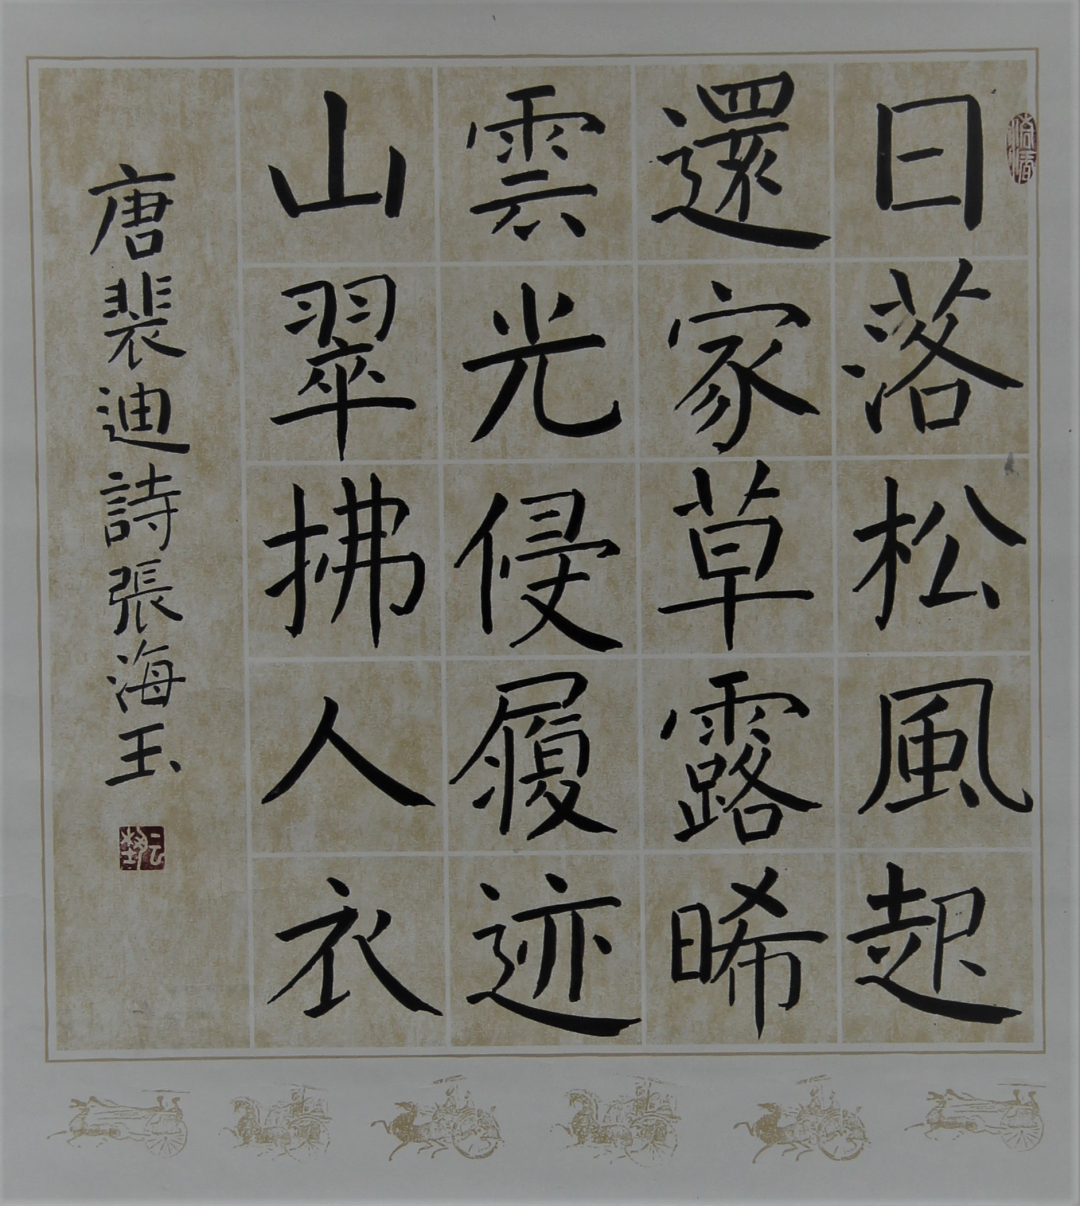 日落松風起
還家草露晞
雲光侵履迹
山翠拂人衣
唐裴迪詩張海玉